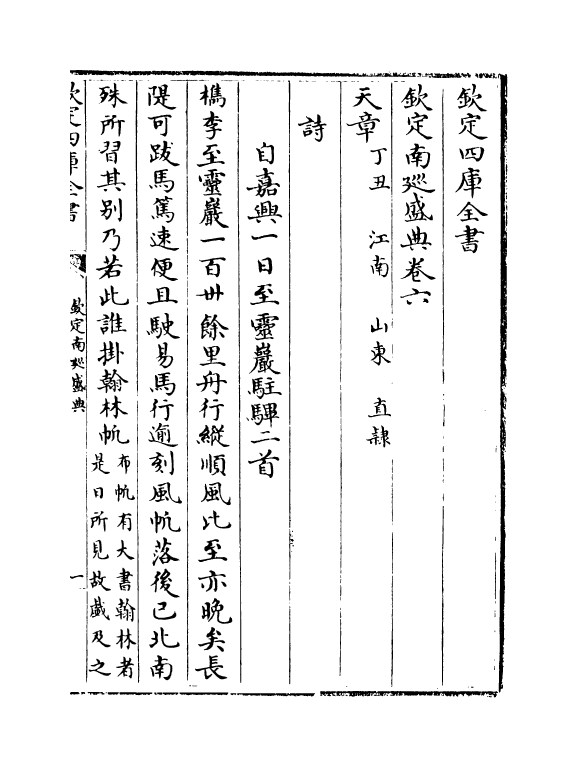 欽定四庫全書
欽定南廵盛典卷六
天章丁丑　江南　山東　直隸
詩
自嘉興一日至靈巖駐驆二首
檇李至靈巖一百卅餘里舟行縱順風比至亦晚矣長
隄可跋馬篤速便且駛易馬行逾刻風帆落後已北南
殊所習其别乃若此誰掛翰林帆布帆有大書翰林者是日所見故戲及之
欽定四庫全書
欽定南廵盛典
一